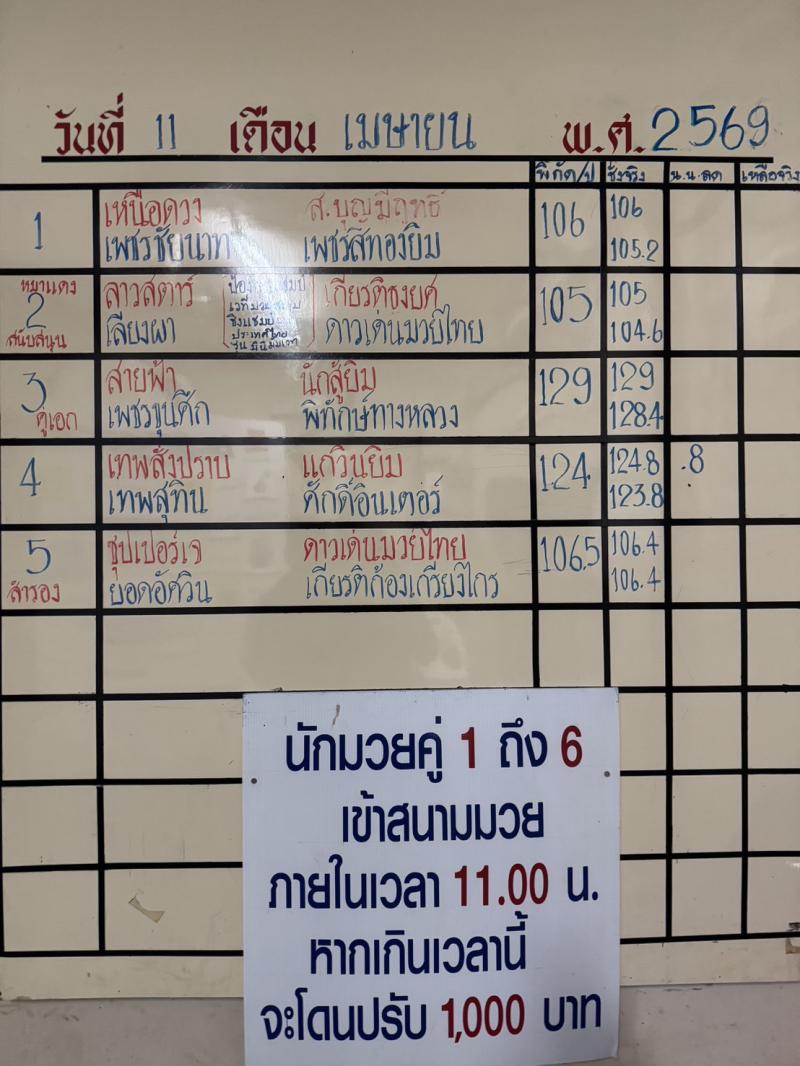 วันที่ 11 เดือน เมษายน พ.ศ. 2569
พิกัด/ป ชั่งจริง น.น.ลด เหลือจริง
1 เหนือดวง ส.บุญมีฤทธิ์ 106 106
เพชรชัยนาท เพชรสีทองยิม 105.2
หมาแดง
2 ลาวสตาร์ เกียรติธงยศ 105 105
สนับสนุน เลียงผา ดาวเด่นมวยไทย 104.6
ชิงแชมป์
ประเทศไทย
รุ่น มินิมั่มเวท
3 สายฟ้า นักสู้ยิม 129 129
คู่เอก เพชรขุนศึก พิทักษ์ทางหลวง 128.4
4 เทพสั่งปราบ แก้วินยิม 124 124.8 .8
เทพสุทิน ศักดิ์อินเตอร์ 123.8
5 ซุปเปอร์เจ ดาวเด่นมวยไทย 106.5 106.4
สำรอง ยอดอัศวิน เกียรติก้องเกรียงไกร 106.4
นักมวยคู่ 1 ถึง 6
เข้าสนามมวย
ภายในเวลา 11.00 น.
หากเกินเวลานี้
จะโดนปรับ 1,000 บาท